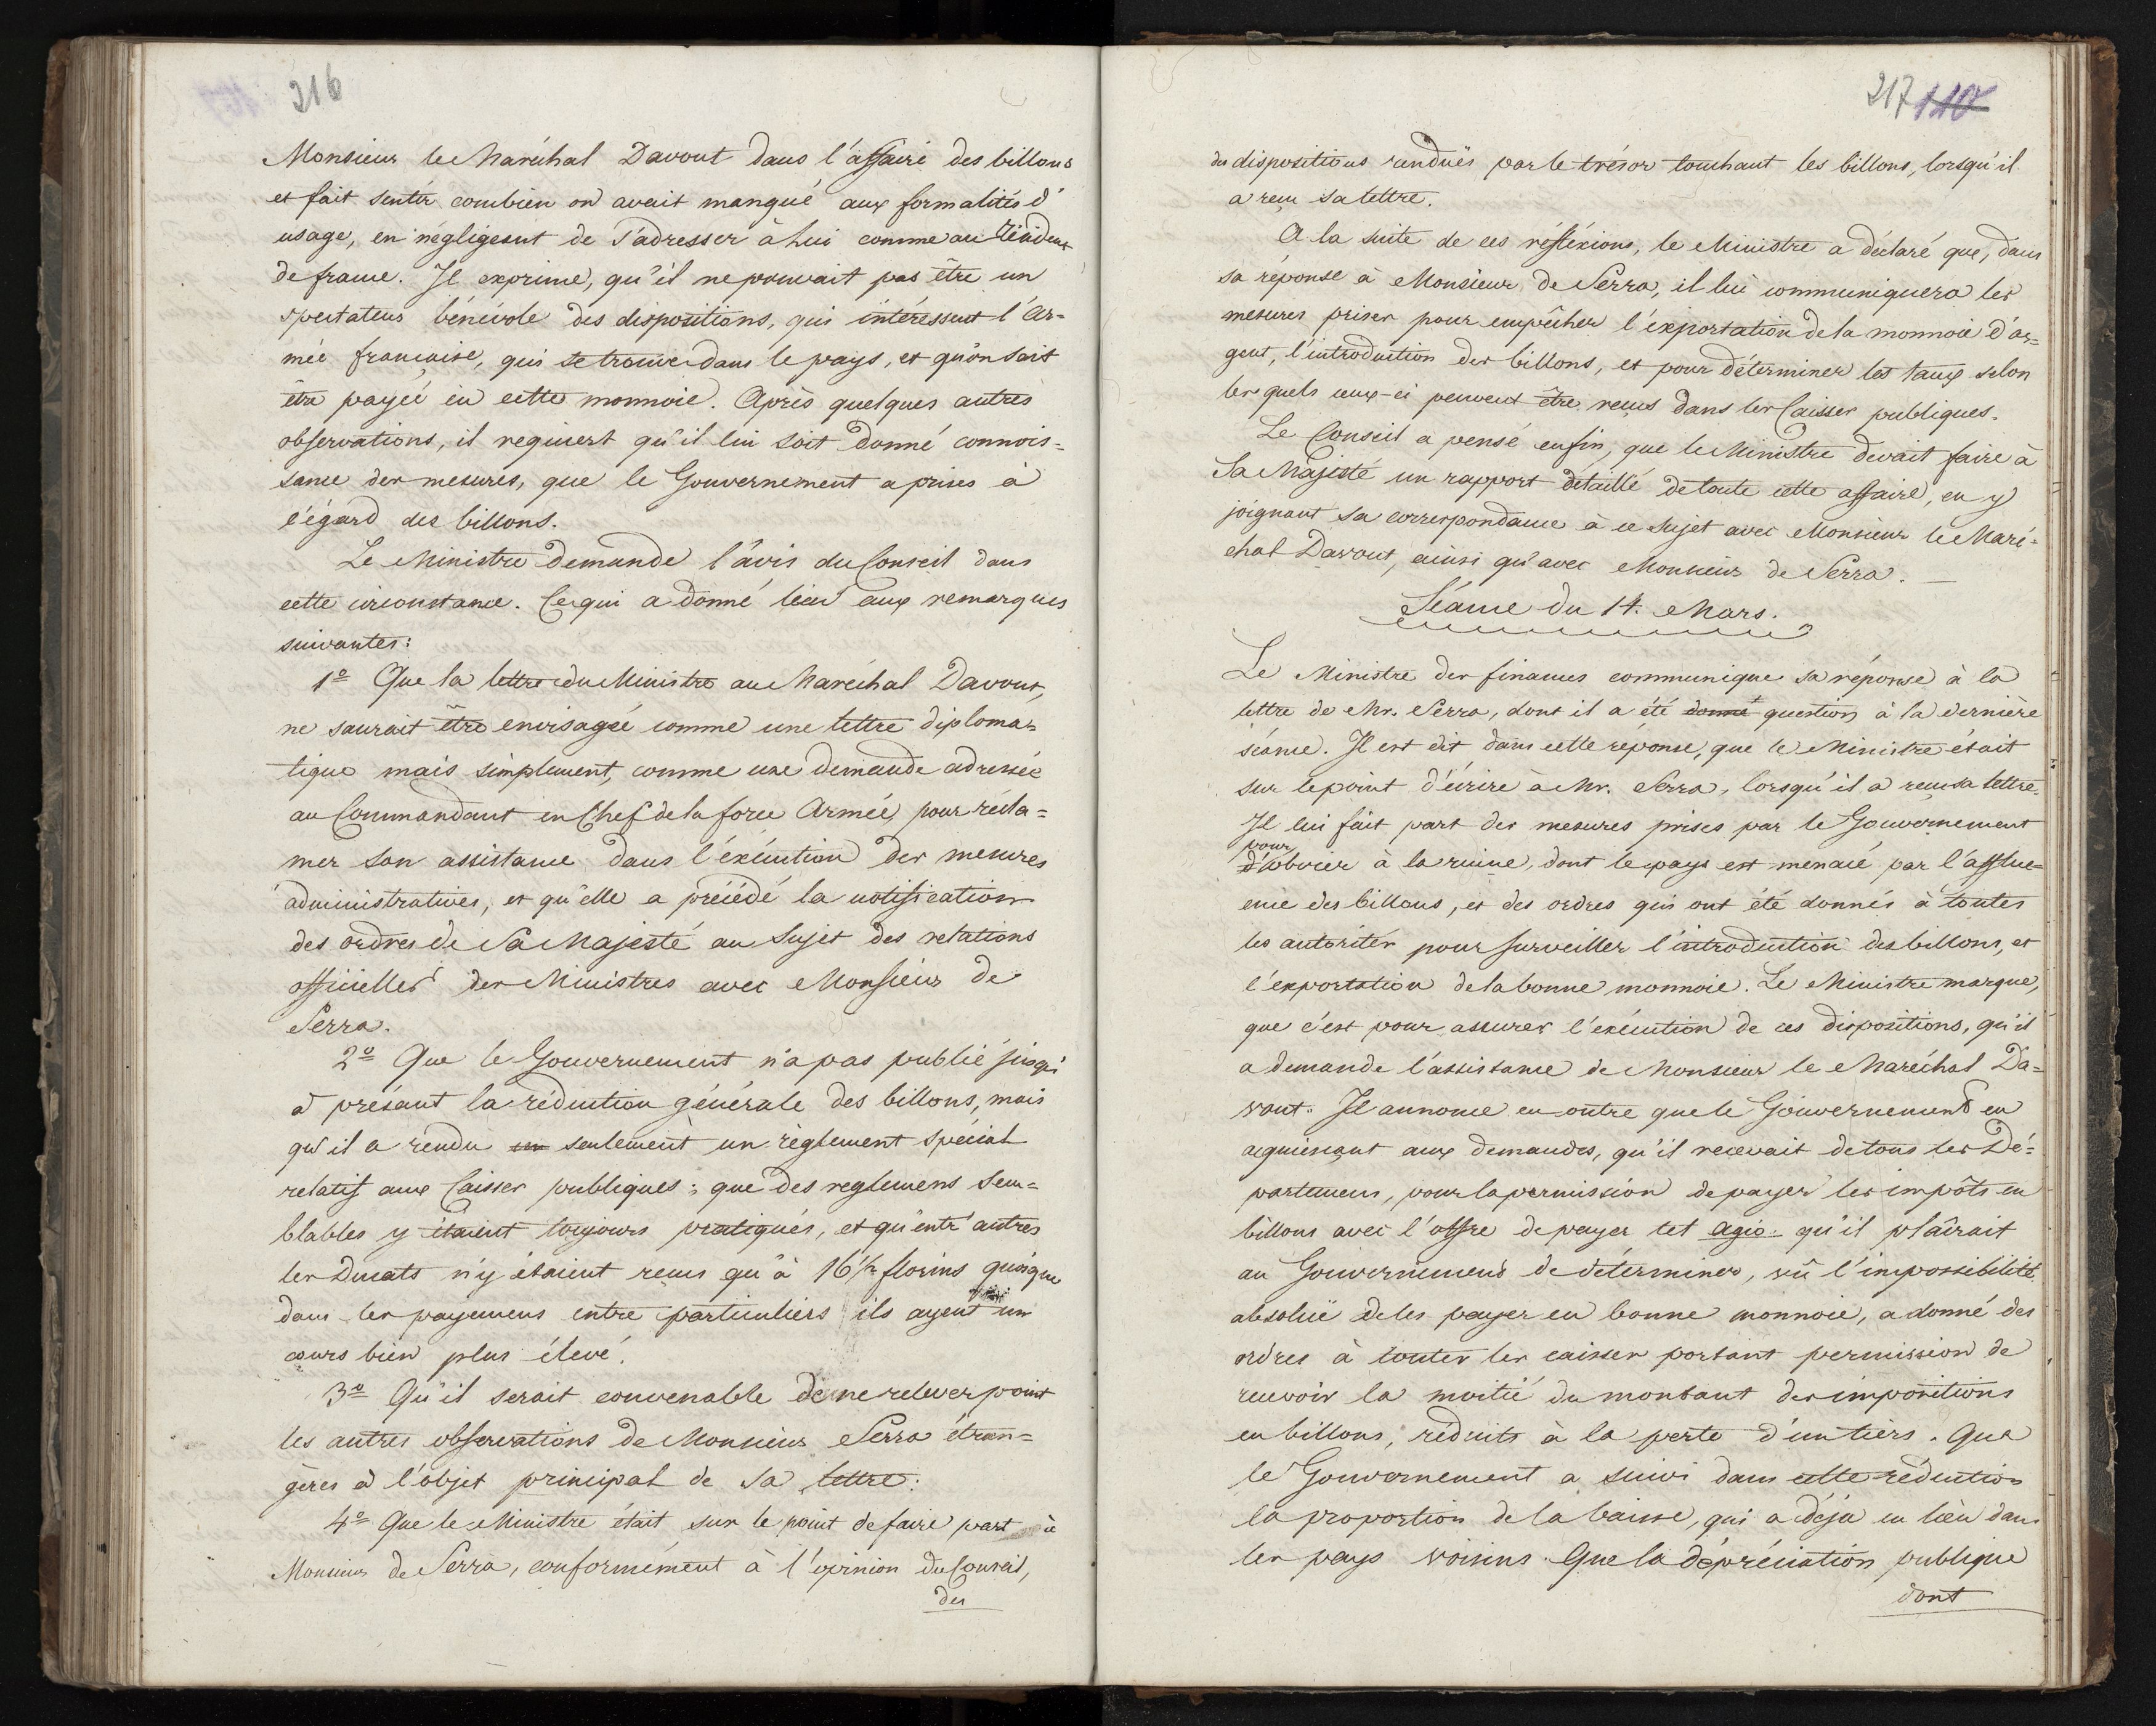 216
Monsieur le Maréchal Davout dans l'affaire des billons
et fait sentir combien on avait manqué aux formalités d'
usage, en négligeant de s'adresser à lui comme au Résident
de france. Il exprime, qu'il ne pouvait pas être un
spectateur bénévole des dispositions, qui intéressent l'Ar=
mée française, qui se trouve dans le pays, et qu'on sait
être payée en cette monnoie. Après quelques autres
observations, il requiert qu'il lui soit donné connois=
sance des mesures, que le Gouvernement a prises à
l'égard des billons.
Le Ministre demande l'avis du Conseil dans
cette circonstance. Ce qui a donné lieu aux remarques
suivantes:
1º Que la lettre du Ministre au Maréchal Davout,
ne saurait être envisagée comme une lettre diploma=
tique mais simplement, comme une demande adressée
au Commandant en Chef de la force Armée, pour récla=
mer son assistance dans l'éxécution des mesures
administratives, et qu'elle a précédé la notification
des ordres de Sa Majesté au Sujet des relations
officielles des Ministres avec Monsieur de
Serra.
2º Que le Gouvernement n'a pas publié jusqu'
à présant la réduction générale des billons, mais
qu'il a rendu un seulement un règlement spécial
relatif aux Caisses publiques; que des reglemens sem=
blables y étaient toujours pratiqués, et qu'entr'autres
les Ducats n'y étaient reçus qu'à 16 1/2 florins quoique
dans les payemens entre particuliers ils ayent un
cours bien plus élevé.
3º Qu'il serait convenable de ne relever point
les autres observations de Monsieur Serra étran=
gères à l'objet principal de sa lettre.
4º Que le Ministre était sur le point de faire part à
Monsieur de Serra, conformément à l'opinion du Conseil,
des
217 110
des dispositions rendues par le trésor touchant les billons, lorsqu'il
a reçu sa lettre.
A la suite de ces réfléxions, le Ministre a déclaré que, dans
sa réponse à Monsieur de Serra, il lui communiquera les
mesures prises pour empêcher l'exportation de la monnoie d'ar=
gent, l'introduction des billons, et pour déterminer les taux selon
les quels ceux-ci peuvent être reçus dans les Caisses publiques.
Le Conseil a pensé enfin, que le Ministre devait faire à
Sa Majesté un rapport détaillé de toute cette affaire, en y
joignant sa correspondance à ce Sujet avec Monsieur le Maré=
chal Davout, ainsi qu'avec Monsieur de Serra. —
Séance du 14. Mars.
Le Ministre des finances communique sa réponse à la
lettre de Mr. Serra, dont il a été donné question à la dernière
séance. Il est dit dans cette réponse, que le Ministre était
sur le point d'écrire à Mr. Serra, lorsqu'il a reçu sa lettre.
Il lui fait part des mesures prises par le Gouvernement
pour
d'obvier à la ruine, dont le pays est menacé par l'afflue=
ence des billons, et des ordres qui ont été donnés à toutes
les autorités pour surveiller l'introduction des billons, et
l'exportation de la bonne monnoie. Le Ministre marque,
que c'est pour assurer l'exécution de ces dispositions, qu'il
a demandé l'assistance de Monsieur le Maréchal Da=
vout. Il annonce en outre que le Gouvernement en
acquiesçant aux demandes, qu'il recevait de tous les Dé=
partemens, pour la permission de payer les impôts en
billons avec l'offre de payer tel agio qu'il plairait
au Gouvernement de déterminer, vû l'impossibilité
absolüe de les payer en bonne monnoie, a donné des
ordres à toutes les caisses portant permission de
recevoir la moitié du montant des impositions
en billons, réduits à la perte d'un tiers. Que
le Gouvernement a suivi dans cette réduction
la proportion de la baisse, qui a déja eu lieu dans
les pays voisins. Que la dépréciation publique
dont